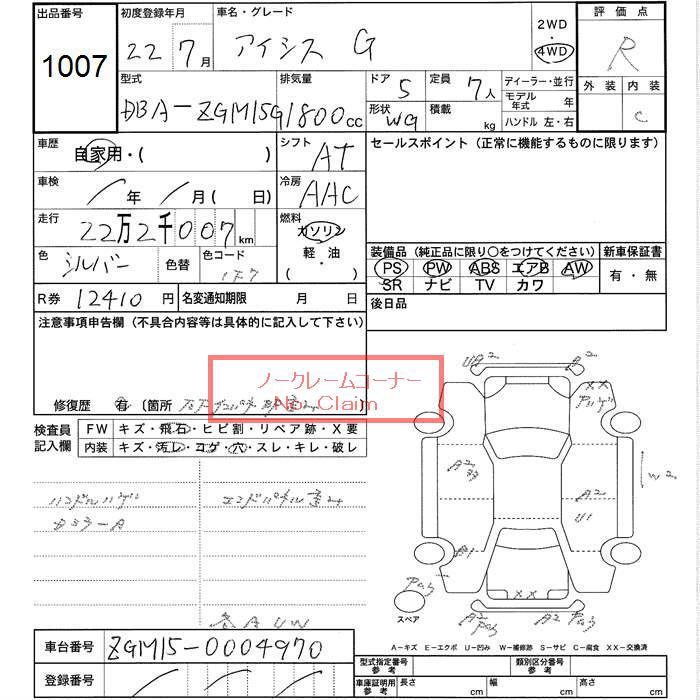 出品番号
1007
初度登録年月
22 7月
車名・グレード
アイシス G
2WD
・
4WD
評価点
R
外装 内装
C
型式
DBA-ZGM15G
排気量
1800cc
ドア 5
形状 WG
定員 7人
積載 kg
ディーラー・並行
モデル年式 年
ハンドル 左・右
車歴
自家用・( )
シフト
AT
セールスポイント (正常に機能するものに限ります)
車検
年 月( 日)
冷房
AAC
走行
22万2千007km
燃料
ガソリン
軽・油
( ・ )
色
シルバー
色替
色コード
1F7
装備品 (純正品に限り〇をつけてください)
PS PW ABS エアB AW
SR ナビ TV カワ
新車保証書
有・無
R券 12410円
名変通知期限 月 日
後日品
注意事項申告欄 (不具合内容等は具体的に記入して下さい)
ノークレームコーナー
No Claim
修復歴 有 〔箇所
検査員記入欄
FW キズ・飛石・ヒビ割・リペア跡・X要
内装 キズ・汚レ・コゲ・穴・スレ・キレ・破レ
ハンドルハゲ
エンドパネル歪み
A2
A2
U1
W2
XX
XX
スペア
車台番号
ZGM15-0004970
登録番号
A-キズ E-エクボ U-凹み W-補修跡 S-サビ C-腐食 XX-交換済
型式指定番号 参考
類別区分番号 参考
車庫証明用 参考
長さ cm
幅 cm
高さ cm